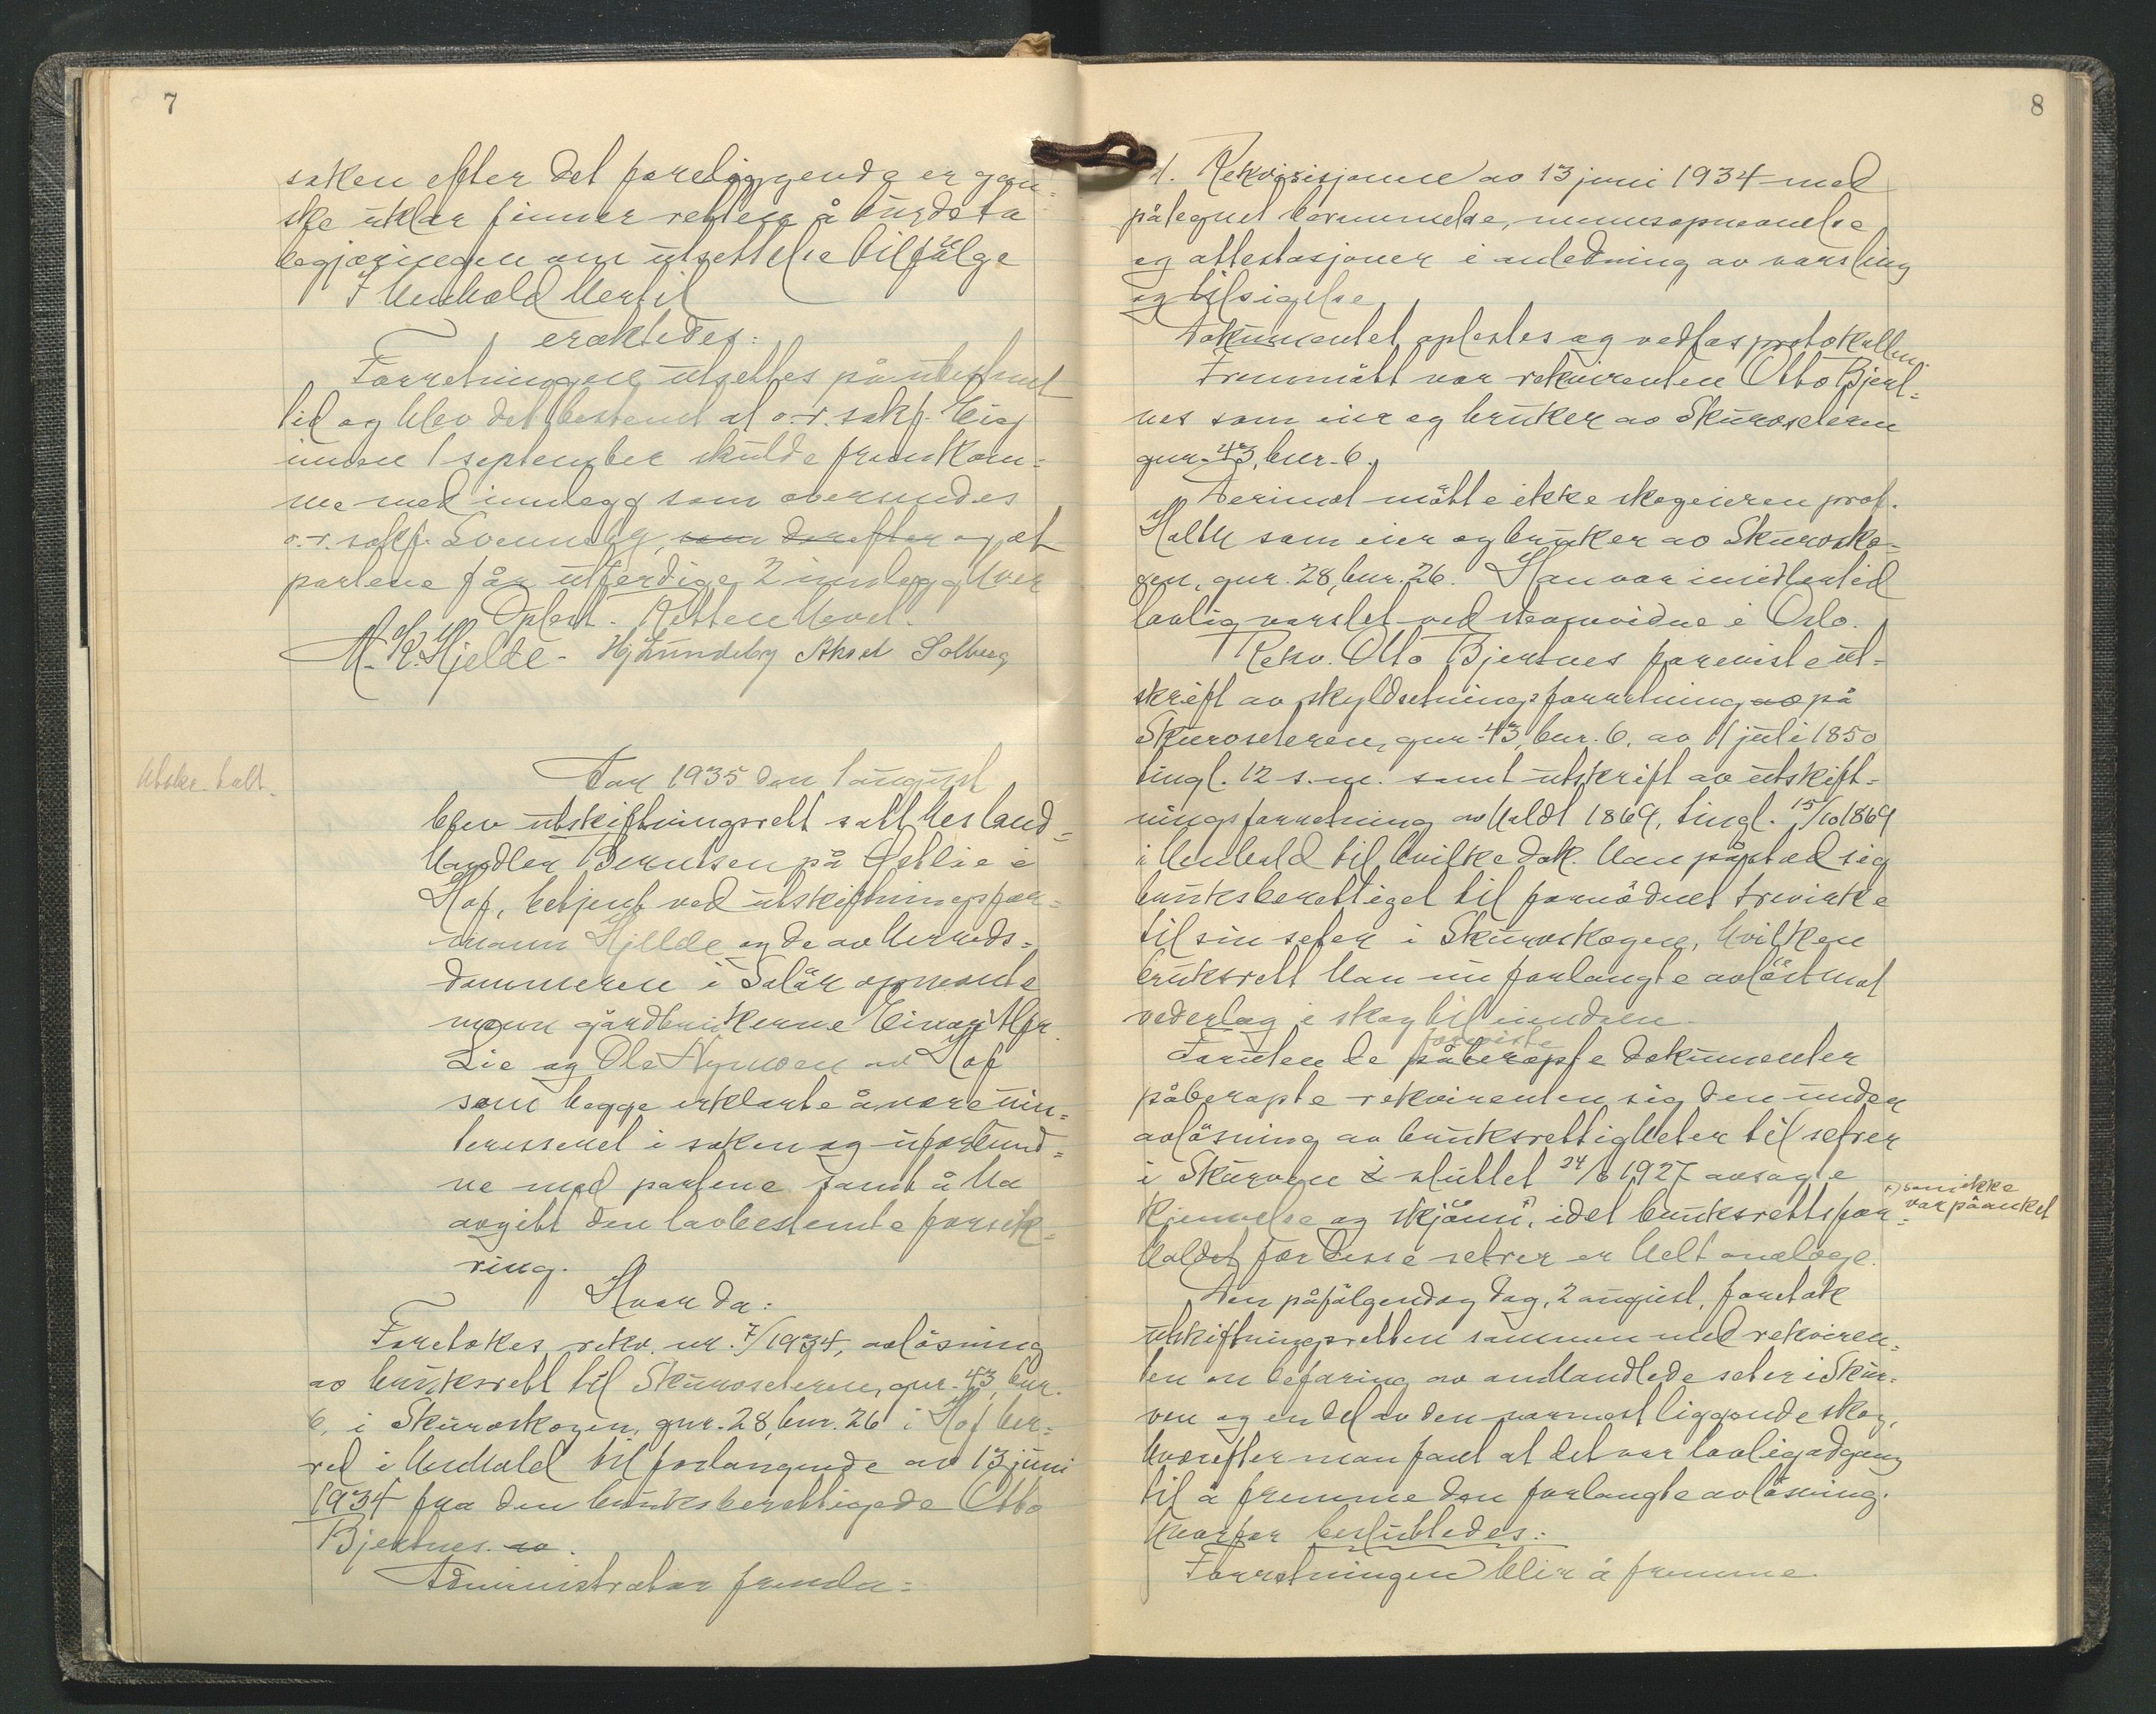 7
saken efter det foreliggende er gan-
ske uklar finner retten å burde ta
begjæringen om utsettelse tilfølge
I henhold hertil
eraktedes:
Forretningen utsettes på ubestemt
tid og blev det bestemt at o.r.sakf. Eig
innen 1 september skulde fremkom-
me med innlegg som oversendes
o.r.sakf. Svenneby, som derefter og at
partene får utferdige 2 innlegg hver
Oplest. Retten hevet.
M. K. Hjelde - Hj Lundeby Aksel Solberg
Utskr. betalt.
Aar 1935 den 1 august
blev utskiftningsrett satt hos land-
handler Berntsen på Østlie i
Hof, betjent ved utskiftningsfor-
mann Hjelde og de av herreds-
dommeren i Solør opnevnte
menn gårdbrukerne Einar Hfr.
Lie og Ole Nymoen av Hof
som begge erklærte å være uin-
teressert i saken og uforbund-
ne med partene samt å ha
avgitt den lovbestemte forsik-
ring.
Hvor da:
Foretokes rekv. nr. 7/1934, avløsning
av bruksrett til Skurvseteren, gnr. 43, bnr.
6, i Skurvskogen, gnr. 28, bnr. 26 i Hof her-
red i henhold til forlangende av 13 juni
1934 fra den bruksberettigede Otto
Bjertnes. av.
Administrator fremla:
8
1. Rekvisisjonen av 13 juni 1934 med
påtegnet berammelse, mennsopnevnelse
og attestasjoner i anledning av varsling
og tilsigelse
Dokumentet oplestes og vedtas protokollen.
Fremmøtt var rekvirenten Otto Bjert-
nes som eier og bruker av Skurvseteren
gnr. 43, bnr. 6.
Derimot møtte ikke skogeieren prof.
Holth som eier og bruker av Skurvsko-
gen, gnr. 28, bnr. 26. Han var imidlertid
lovlig varslet ved stevnevidne i Oslo.
Rekv. Otto Bjertnes foreviste ut-
skrift av skyldsetningsforretning av på
Skurvseteren, gnr. 43, bnr. 6. av 11 juli 1850
tingl. 12 s.m. samt utskrift av utskift-
ningsforretning avholdt 1869, tingl. 15/10 1869
i henhold til hvilke dok. han påstod sig
bruksberettiget til fornødent trevirke
til sin seter i Skurvskogen, hvilken
bruksrett han nu forlangte avløst mot
vederlag i skog til eiendom
foreviste
Foruten de påberopte dokumenter
påberopte rekvirenten sig den under
avløsning av bruksrettigheter til setrer
i Skurven i sluttet 24/6 1927 avsagte
kjennelse og skjønn x), idet bruksrettsfor-
x) som ikke
var påanket
holdet for disse setrer er helt analoge.
Den påfølgende dag, 2 august, foretok
utskiftningsretten sammen med rekviren-
ten en befaring av omhandlede seter i Skur-
ven og en del av den nærmest liggende skog,
hvorefter man fant at det var lovlig adgang
til å fremme den forlangte avløsning.
Hvorfor besluttedes:
Forretningen blir å fremme.